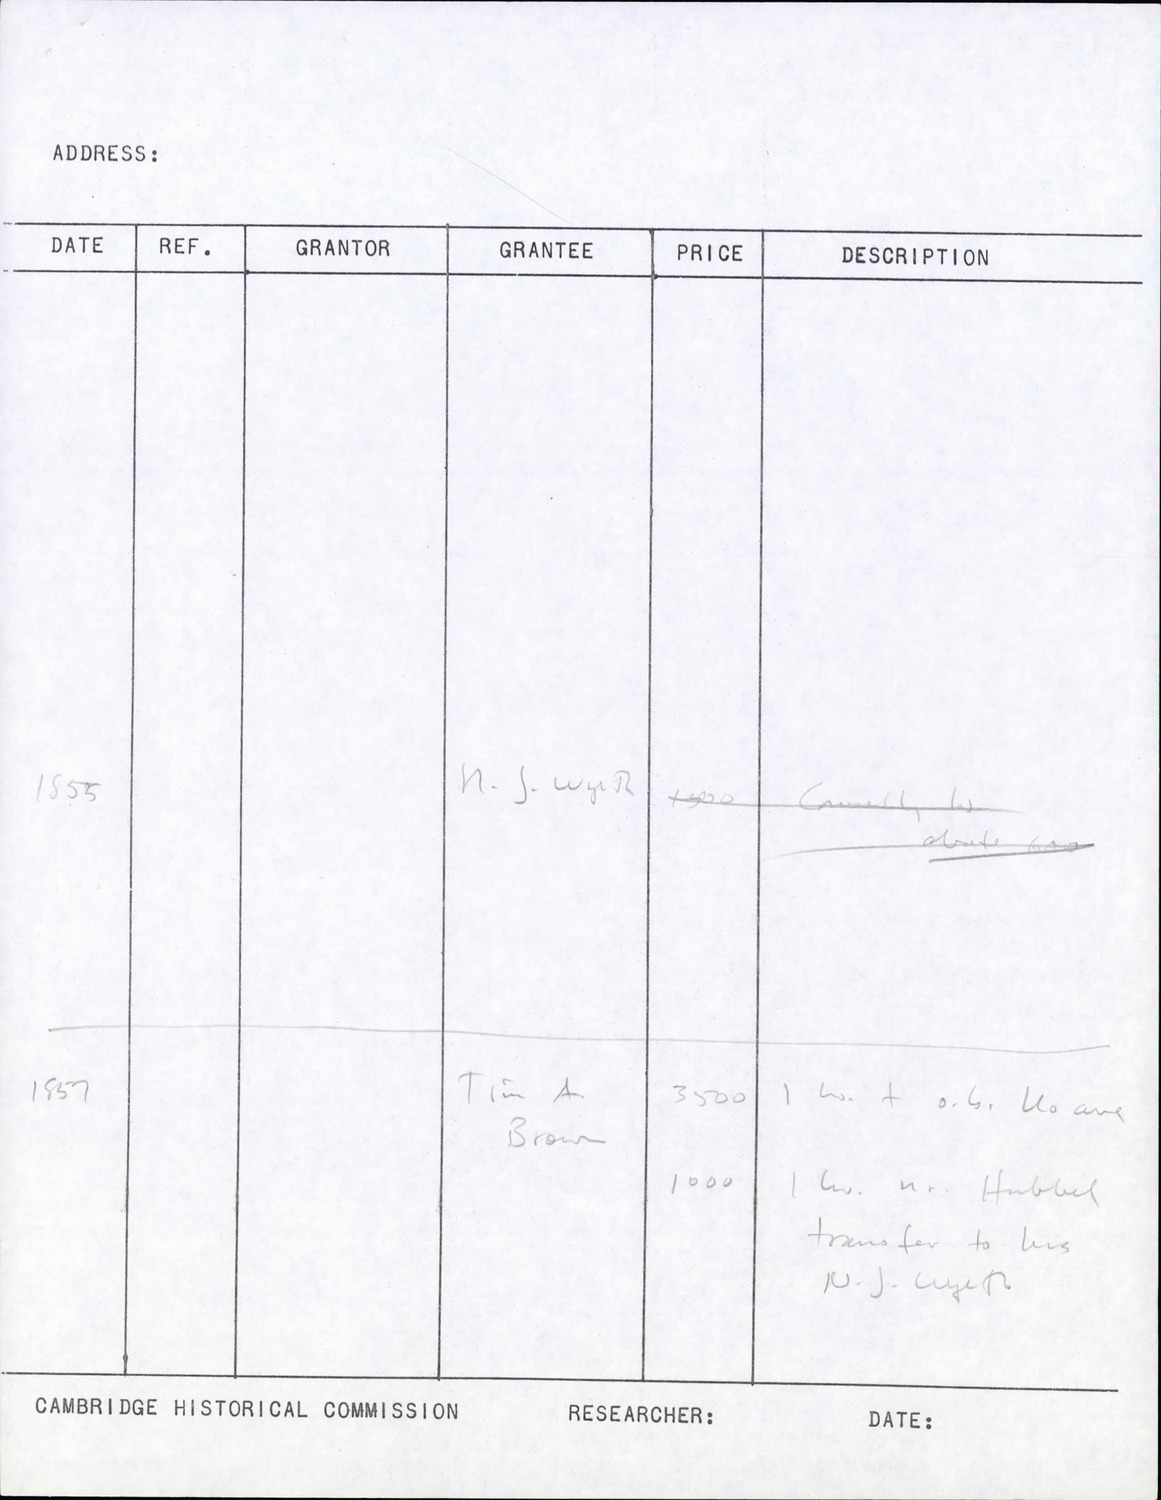 ADDRESS:
DATE REF. GRANTOR GRANTEE PRICE DESCRIPTION
1855 N. J. Wyeth 1500
abate 600
1857 Tim A. 3500 1 ho. + o.b. ave
Brown
1000 1 ho. nr. Hubbel
transfer to hrs
N. J. Wyeth
CAMBRIDGE HISTORICAL COMMISSION RESEARCHER: DATE: